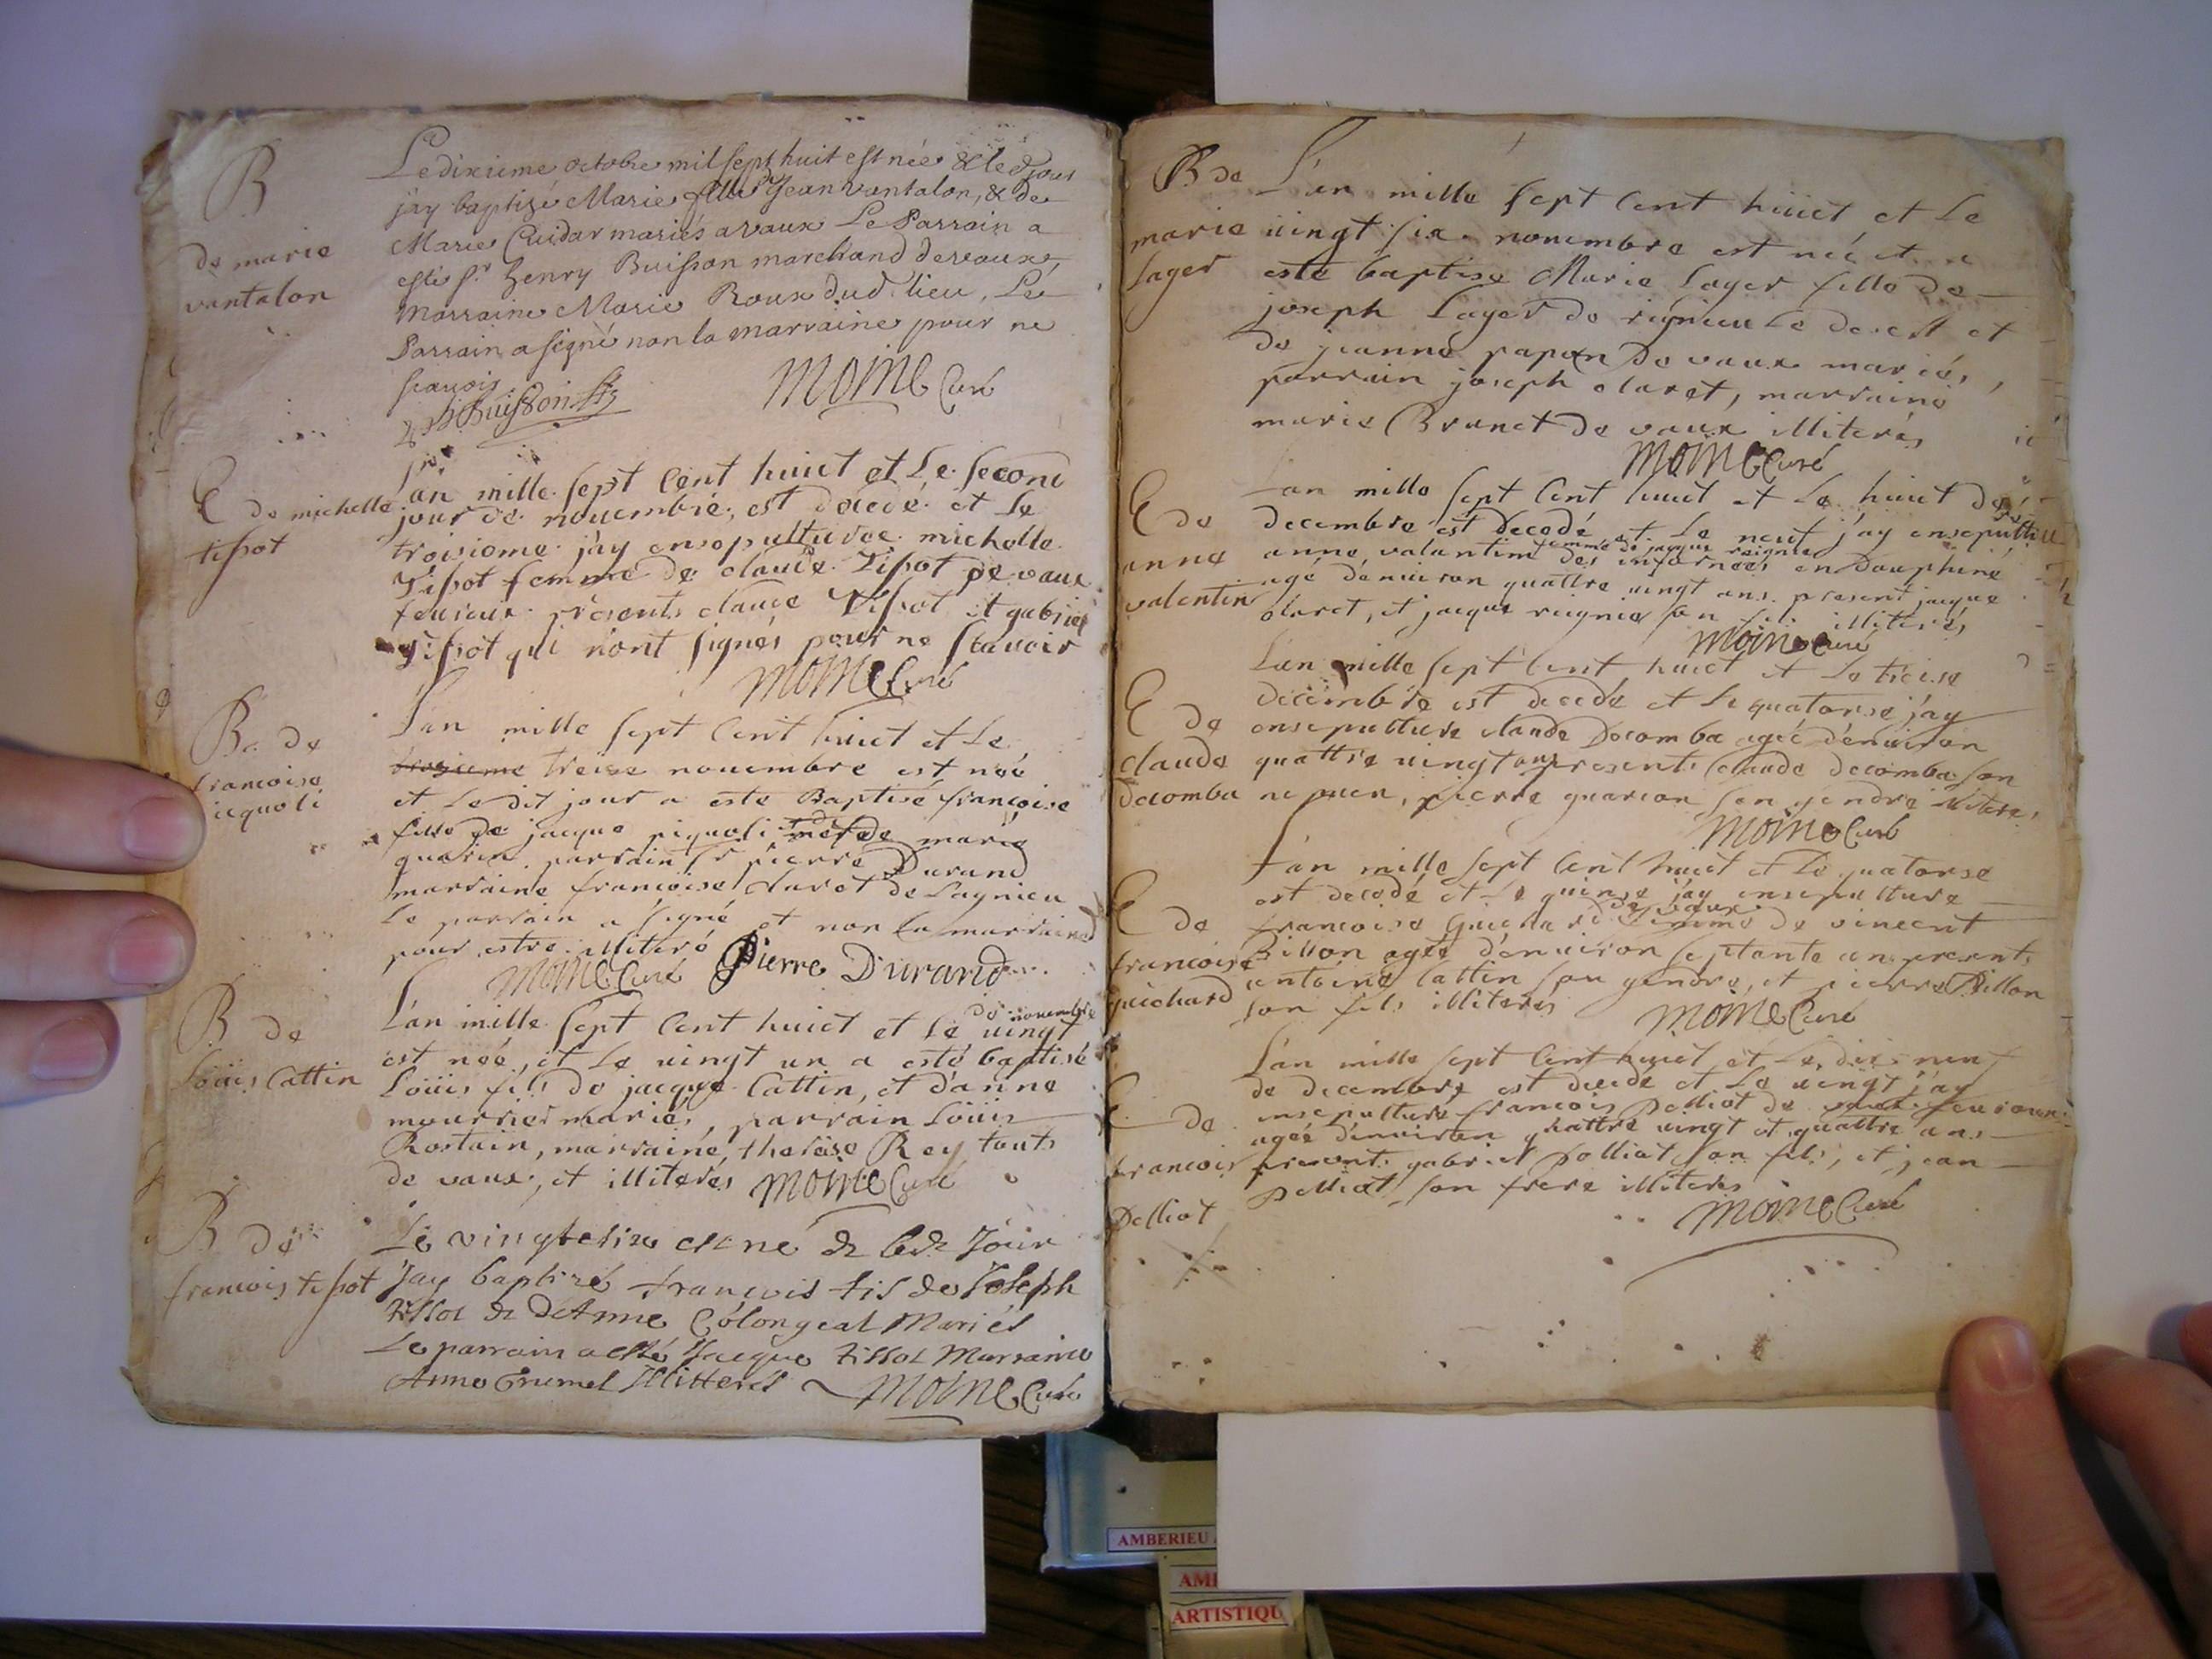 B
de marie
vantalon
Le dixieme octobre mil sept huit est née & led jour
jay baptizé Marie fille Jean vantalon, & de
Marie Cuidar mariés a vaux Le Parrain a
esté sr henry Buisson marchand de vaux,
Marraine Marie Roux dud lieu, Le
Parrain a signé non la marraine pour ne
scavoir
Buisson
Moine Curé
E de michelle
tissot
L'an mille sept cent huict et le second
jour de novembre, est decedé et le
troisiome jay ensepulturee michelle
Tissot femme de claude Tissot de vaux
feuroux presents claude Tissot et gabriel
Tissot qui n'ont signés pour ne scavoir
Moine Curé
B. de
francoise
L'an mille sept cent huict et le
treise novembre est née
et le dit jour a esté Baptisé francoise
fille de jacque piquoli et de marie
quarin parrain sr pierre Durand
marraine francoise claret de Lagnieu
le parrain a signé et non la marraine
pour estre illiteré
Moine Curé Pierre Durand
B de
Loüis Cattin
L'an mille sept cent huict et le vingt de novembre
est née, et le vingt un a esté baptisé
Loüis fils de jacque Cattin, et d'anne
mourrier mariés, parrain Loüis
Rostain, marraine, therese Rey touts
de vaux, et illiterés Moine Curé
B de
francois tissot
Le vingtesix est né & led Jour
Jay baptizé francois fis de Joseph
tissot & De Anne Colongeat Mariés
Le parrain a esté Jacque tissot Marraine
Anne Illiterés Moine Curé
B de
marie
Lager
L'an mille sept cent huict et le
vingt six novembre est née et
esté baptise Marie Lager fille de
joseph Lager de rignieu le desert et
de jeanne papon de vaux mariés,
parrain joseph claret, marraine
marie Brunet de vaux illiterés
Moine Curé
E de
anne
valentin
L'an mille sept cent huict et le huict de
decembre est decedé et le neuf j'ay ensepulture
femme de jacque reignie
anne valantin des en Dauphiné
agé d'environ quattre vingt ans present jacque
claret, et jacque reignie son fils illiterés
Moine Curé
E de
claude
decomba
L'an mille sept cent huict et le treise
decembre est decedé et le quatorse j'ay
ensepulture claude Decomba agée d'environ
quattre vingt ans presents claude decomba son
nepveu, pierre quarion son gendre illiteré
Moine Curé
E de
francoise
guichard
L'an mille sept cent huict et le quatorse
est decedé et le quinse j'ay ensepulture
de vaux
francoise Guichard femme de vincent
Billon agée d'environ septante an presents
antoine Cattin son gendre, et pierre Billon
son fils illiterés
Moine Curé
E de
francois
Pelliot
L'an mille sept cent huict et le dix neuf
de decembre est decedé et le vingt j'ay
ensepulture francois Pelliot de vaux feuroux
agée d'environ quattre vingt et quattre ans
presents gabriel Polliat son fils, et jean
Pelliat son frere illiterés
Moine Curé
AMBERIEU
AM
ARTISTIQU